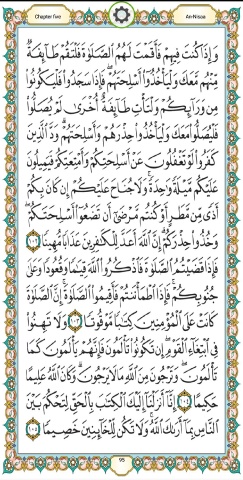 Chapter five An-Nisaa
وَإِذَا كُنتَ فِيهِمْ فَأَقَمْتَ لَهُمُ الصَّلَوٰةَ فَلْتَقُمْ طَآئِفَةٌ
مِّنْهُم مَّعَكَ وَلْيَأْخُذُوٓا۟ أَسْلِحَتَهُمْ فَإِذَا سَجَدُوا۟ فَلْيَكُونُوا۟
مِن وَرَآئِكُمْ وَلْتَأْتِ طَآئِفَةٌ أُخْرَىٰ لَمْ يُصَلُّوا۟
فَلْيُصَلُّوا۟ مَعَكَ وَلْيَأْخُذُوا۟ حِذْرَهُمْ وَأَسْلِحَتَهُمْ ۗ وَدَّ الَّذِينَ
كَفَرُوا۟ لَوْ تَغْفُلُونَ عَنْ أَسْلِحَتِكُمْ وَأَمْتِعَتِكُمْ فَيَمِيلُونَ
عَلَيْكُم مَّيْلَةً وَٰحِدَةً ۚ وَلَا جُنَاحَ عَلَيْكُمْ إِن كَانَ بِكُمْ
أَذًى مِّن مَّطَرٍ أَوْ كُنتُم مَّرْضَىٰٓ أَن تَضَعُوٓا۟ أَسْلِحَتَكُمْ ۖ
وَخُذُوا۟ حِذْرَكُمْ ۗ إِنَّ اللَّهَ أَعَدَّ لِلْكَٰفِرِينَ عَذَابًا مُّهِينًا ١٠٢
فَإِذَا قَضَيْتُمُ الصَّلَوٰةَ فَاذْكُرُوا۟ اللَّهَ قِيَٰمًا وَقُعُودًا وَعَلَىٰ
جُنُوبِكُمْ ۚ فَإِذَا اطْمَأْنَنتُمْ فَأَقِيمُوا۟ الصَّلَوٰةَ ۚ إِنَّ الصَّلَوٰةَ
كَانَتْ عَلَى الْمُؤْمِنِينَ كِتَٰبًا مَّوْقُوتًا ١٠٣ وَلَا تَهِنُوا۟
فِى ابْتِغَآءِ الْقَوْمِ ۖ إِن تَكُونُوا۟ تَأْلَمُونَ فَإِنَّهُمْ يَأْلَمُونَ كَمَا
تَأْلَمُونَ ۖ وَتَرْجُونَ مِنَ اللَّهِ مَا لَا يَرْجُونَ ۗ وَكَانَ اللَّهُ عَلِيمًا
حَكِيمًا ١٠٤ إِنَّآ أَنزَلْنَآ إِلَيْكَ الْكِتَٰبَ بِالْحَقِّ لِتَحْكُمَ بَيْنَ
النَّاسِ بِمَآ أَرَىٰكَ اللَّهُ ۚ وَلَا تَكُن لِّلْخَآئِنِينَ خَصِيمًا ١٠٥
95